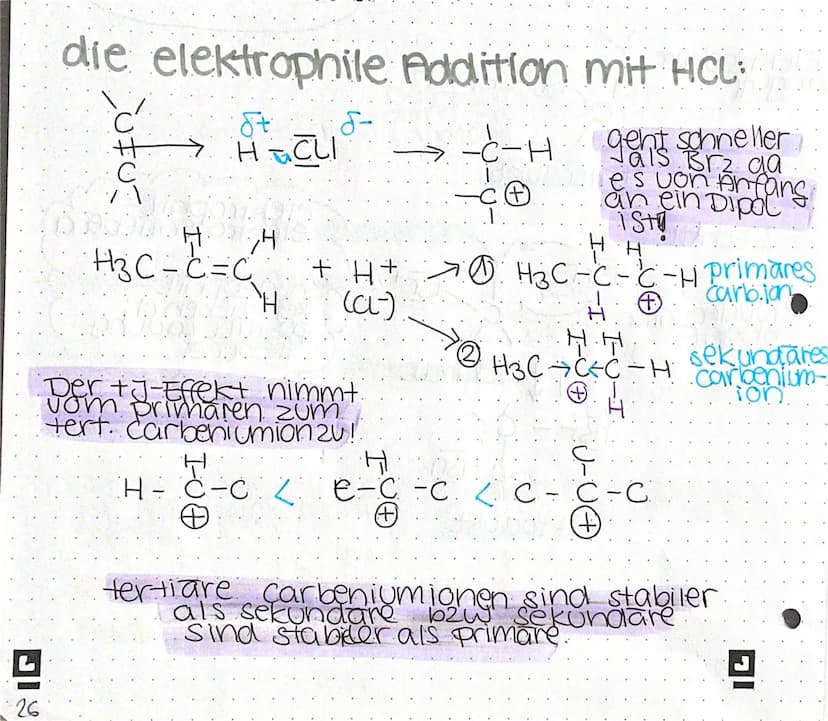 die elektrophile Addition mit HCL:
\ /
C
H
C
/ \
δ+ δ-
H - CU
-C-H
-C ⊕
geht schneller
als Br2 da
es von Anfang
an ein Dipol
ist!
H H
H3C - C = C
H
+ H+
(Cl-)
① H H
H3C - C - C - H
H ⊕
primäres
carb.ion
② H H
H3C → C ← C - H
⊕ H
sekundäres
carbenium-
ion
Der +J-Effekt nimmt
vom primären zum
tert. carbeniumion zu!
H H C
H - C - C < e - C - C < C - C - C
⊕ ⊕ ⊕
tertiäre carbeniumionen sind stabiler
als sekundäre bzw sekundäre
sind stabiler als primäre
26